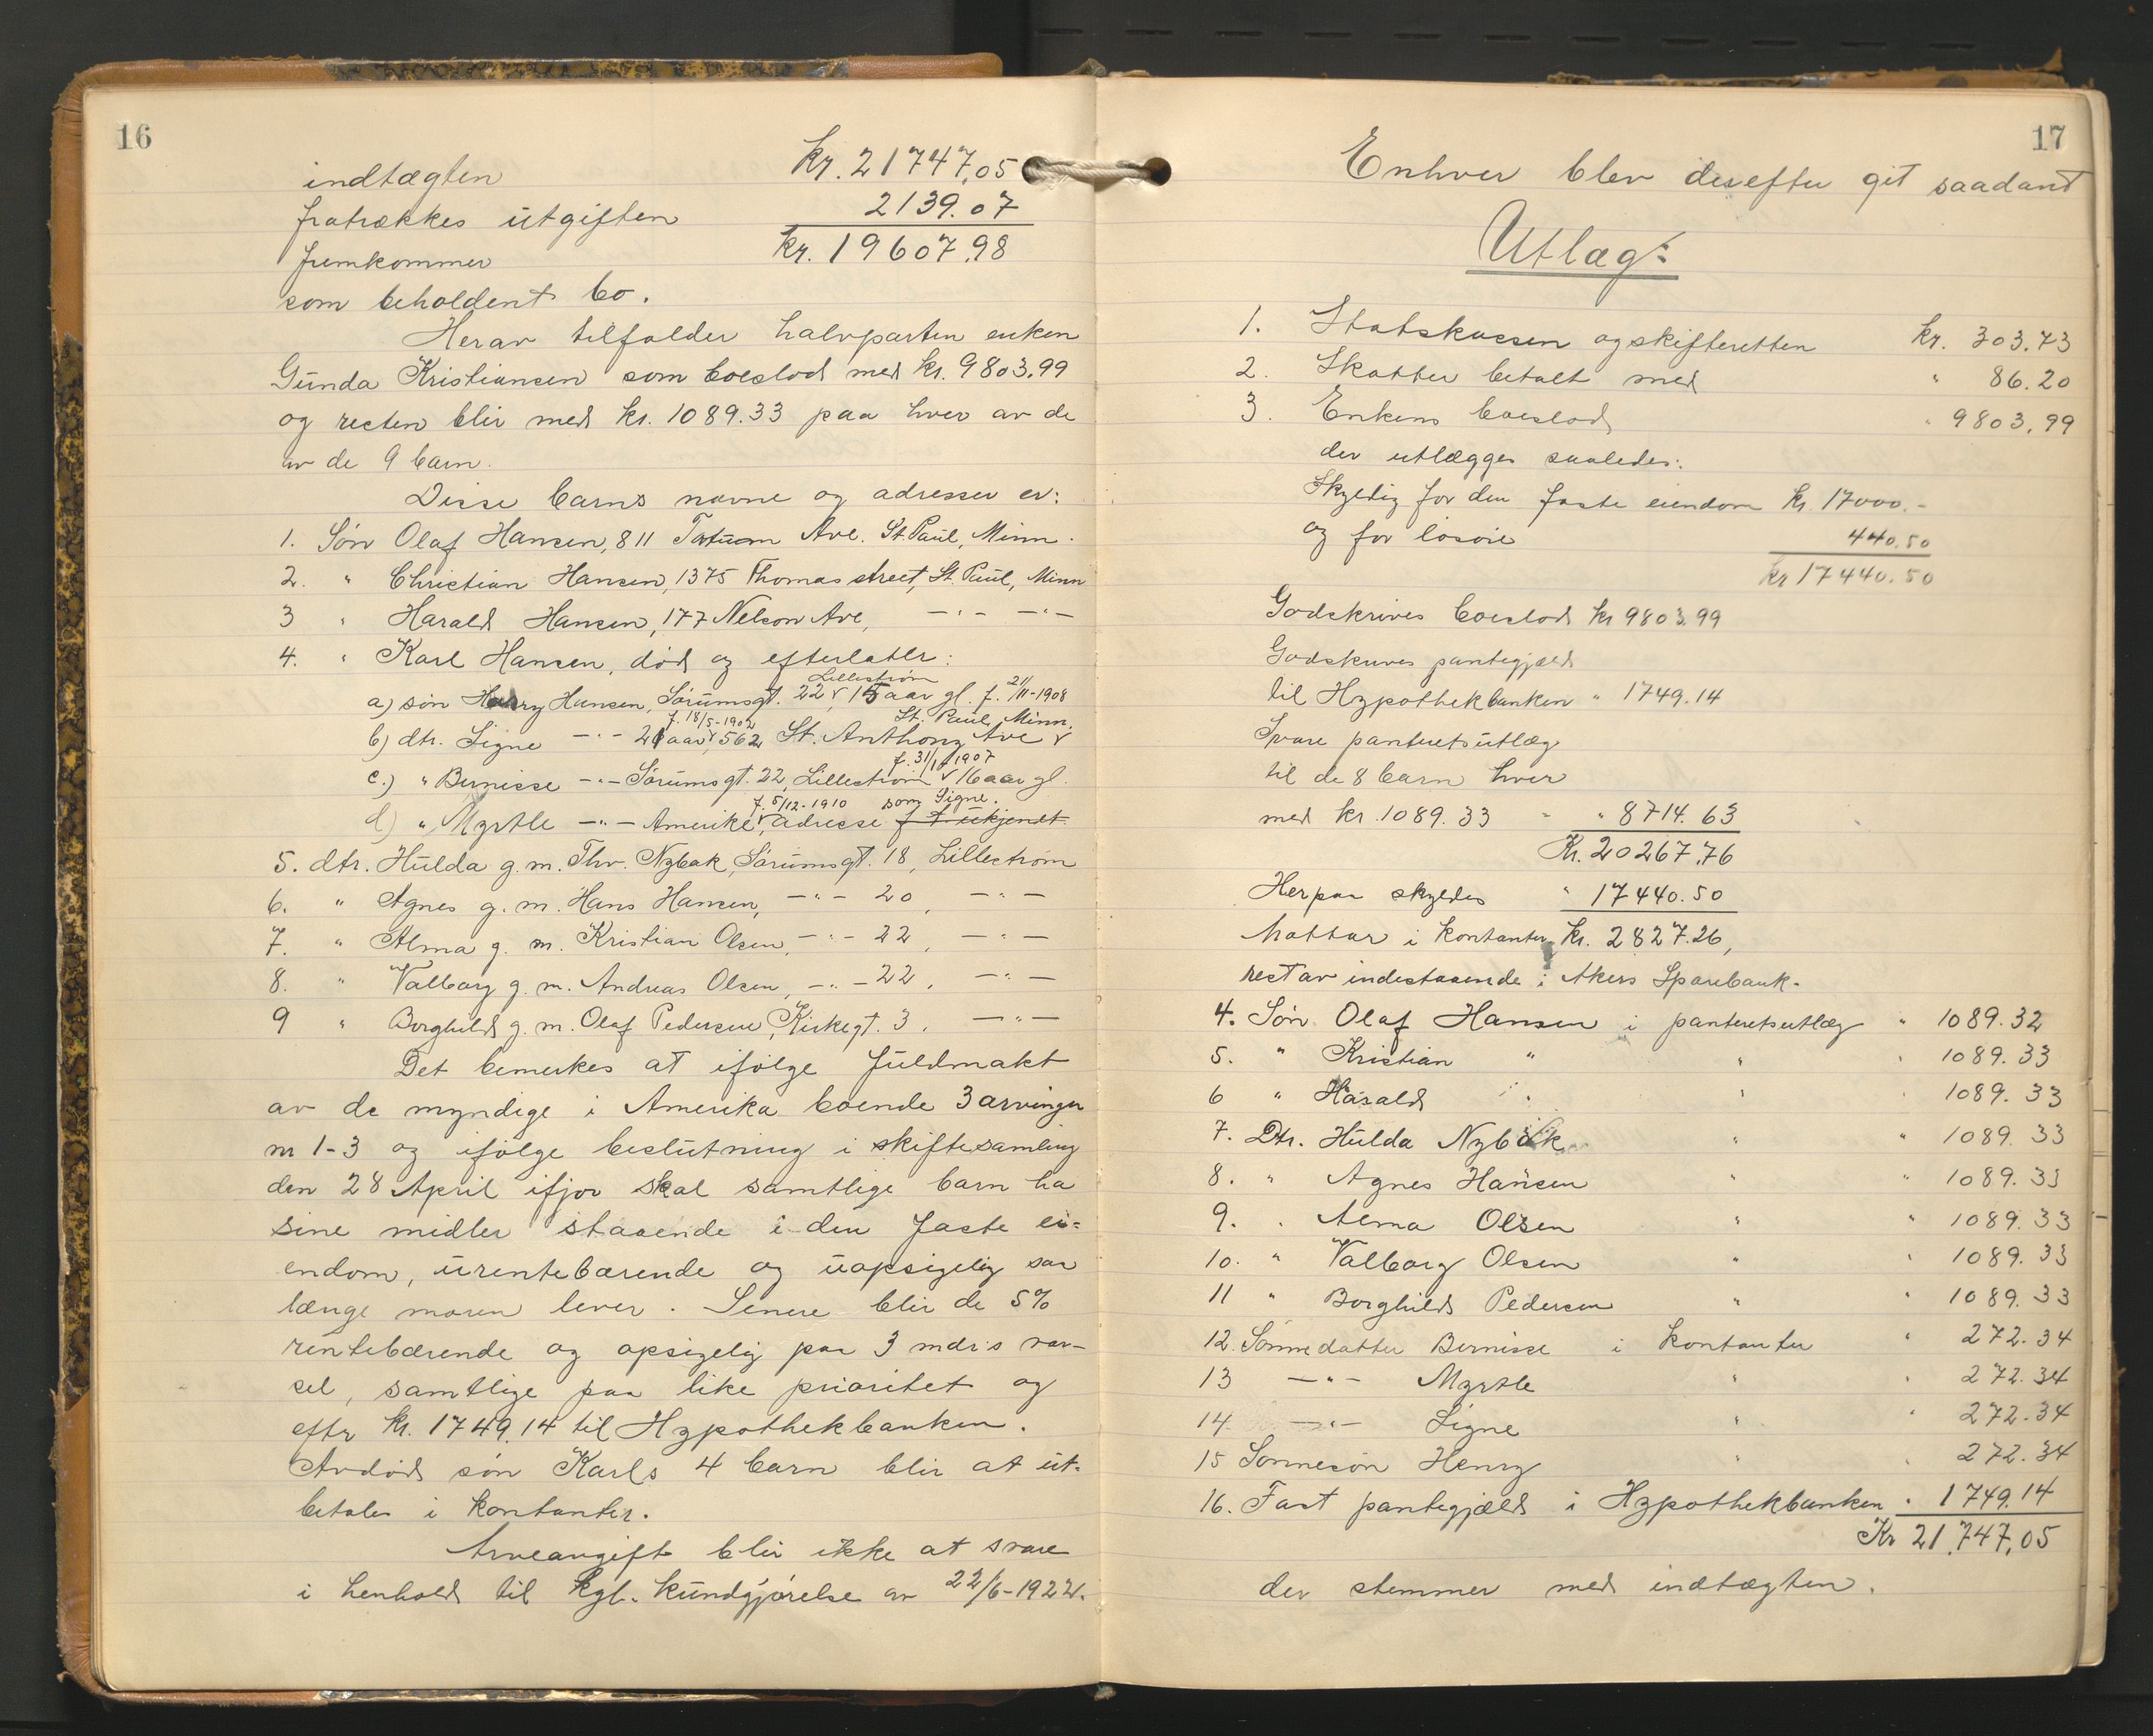 16
indtægten kr. 21747,05
fratrækkes utgiften 2139.07
fremkommer kr. 19607.98
som beholdent bo.
Herav tilfalder halvparten enken
Gunda Kristiansen som boeslod med kr. 9803.99
og resten blir med kr. 1089.33 paa hver av de
av de 9 barn.
Disse barns navne og adresser er:
1. Søn Olaf Hansen, 811 Tatum Ave. St. Paul, Minn.
2. " Christian Hansen, 1375 Thomas street, St. Paul, Minn
3 " Harald Hansen, 177 Nelson Ave, —"— —"—
4. " Karl Hansen, død og efterlatt:
Lillestrøm
a) søn Henry Hansen, Sørumsgt. 22 v, 15 aar gl. f. 21/11-1908
f. 18/5-1902 St. Paul, Minn.
b) dtr. Signe —"— 21 aar v, 562 St. Anthony Ave v
f. 31/10 1907
c.) " Bernisse —"— Sørumsgt. 22, Lillestrøm v 16 aar gl.
f. 5/12-1910 som Signe.
d) " Myrtle —"— Amerika v, adresse f t ukjendt
5. dtr. Hulda g. m. Thv. Nybak, Sørumsgt. 18, Lillestrøm
6. " Agnes g. m. Hans Hansen, —"— 20, —"—
7. " Alma g. m. Kristian Olsen, —"— 22, —"—
8. " Valborg g. m. Andreas Olsen, —"— 22, —"—
9 " Borghild g. m. Olaf Pedersen, Kirkegt. 3, —"—
Det bemerkes at ifølge fuldmakt
av de myndige i Amerika boende 3 arvinger
nr 1-3 og ifølge beslutning i skiftesamling
den 28 April ifjor skal samtlige barn ha
sine midler staaende i den faste ei=
endom, urentebærende og uopsigelig saa
længe moren lever. Senere blir de 5%
rentebærende og opsigelig paa 3 mdr's var-
sel, samtlige paa like prioritet og
eftr kr. 1749.14 til Hypothekbanken.
Avdød søn Karls 4 barn blir at ut-
betales i kontanter.
Arveavgift blir ikke at svare
i henhold til kgl. kundgjørelse av 22/6-1922.
17
Enhver blev derefter git saadant
Utlæg:
1. Statskassen og skifteretten kr. 303.73
2. Skatter betalt med " 86.20
3. Enkens boeslod " 9803.99
der utlægges saaledes:
Skyldig for den faste eiendom kr. 17000.-
og for løsøre 440.50
kr 17440.50
Godskrives boeslod kr 9803.99
Godskrives pantegjæld
til Hypothekbanken " 1749.14
Svare panteretsutlæg
til de 8 barn hver
med kr. 1089.33 " " 8714.63
Kr. 20267,76
Herpaa skyldes " 17440.50
Mottar i kontanter kr. 2827.26,
rest av indestaaende i Akers Sparebank.
4. Søn Olaf Hansen i panteretsutlæg " 1089.32
5. " Kristian " " " 1089.33
6 " Harald " " " 1089.33
7. Dtr. Hulda Nybak " " 1089.33
8. " Agnes Hansen " " 1089.33
9. " Alma Olsen " " 1089.33
10. " Valborg Olsen " " 1089.33
11 " Borghild Pedersen " " 1089.33
12. Sønnedatter Bernisse i kontanter " 272.34
13 —"— Myrtle " " 272.34
14. —"— Signe " " 272.34
15 Sønnesøn Henry " " 272.34
16. Fast pantegjæld i Hypothekbanken " 1749.14
Kr 21.747,05
der stemmer med indtægten.